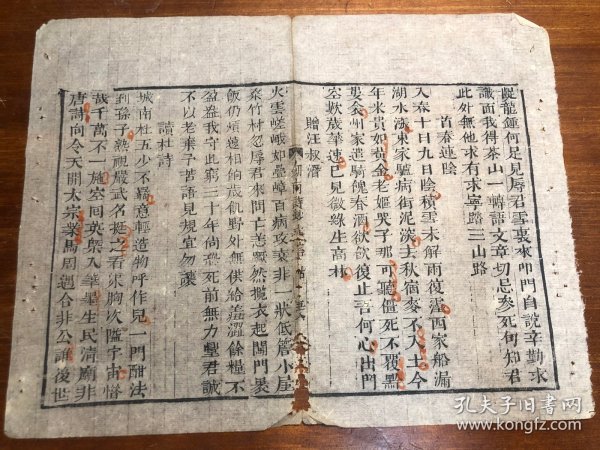 龍鍾何足見辱君雪裏來叩門自說辛勤求
識面我得茶山一轉語文章切忌參死句知君
此外無他求有求寧踏三山路
首春連陰
入春十日九日陰積雪未解雨復霪西家船漏
湖水漲東家驢病街泥深去秋宿麥不入土今
年米貴如黃金老嫗哭子那可聽僵死不覆黔
婁衾州家遣騎餽春酒欲飲復止吾何心出門
空歎歲華速已見微綠生高林
贈汪叔潛
火雲嵯峨如疊嶂百病攻衰非一狀低簷小屋
桑竹村忽辱君來問亡恙蹶然攬衣起闔門裹
飯仍煩遠相餉歲飢野外無供給羞澀餘糧不
盈盎我守此窮三十年尚愁死前無力壁君誠
不以老棄子苦語見規宜勿讓
讀杜詩
城南杜五少不羈意輕造物呼作兒一門酣法
到孫子熟視嚴武名挺之看渠胸次隘宇宙惜
哉千萬不一施空回英槩入筆墨生民清廟非
唐詩向令天開太宗業馬周遇合非公誰後世
孔夫子旧書网
www.kongfz.com